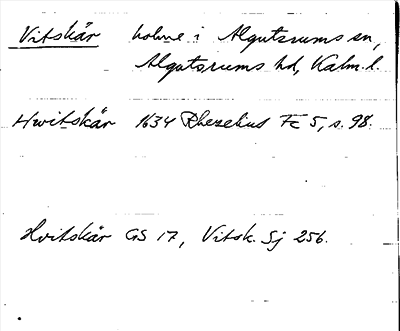 Vitskär holme i Algutsrums sn,
Algutsrums hd, Kalm.l.
Hwitskär 1634 Rhezelius Fc 5, s. 98.
Hvitskär GS 17, Vitsk. Sj 256.